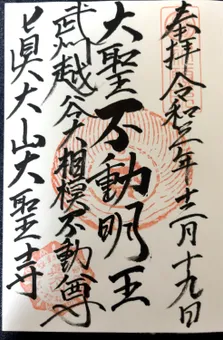 奉拝令和三年十二月十九日
大聖不動明王
武州越谷大相模不動尊
眞大山大聖寺